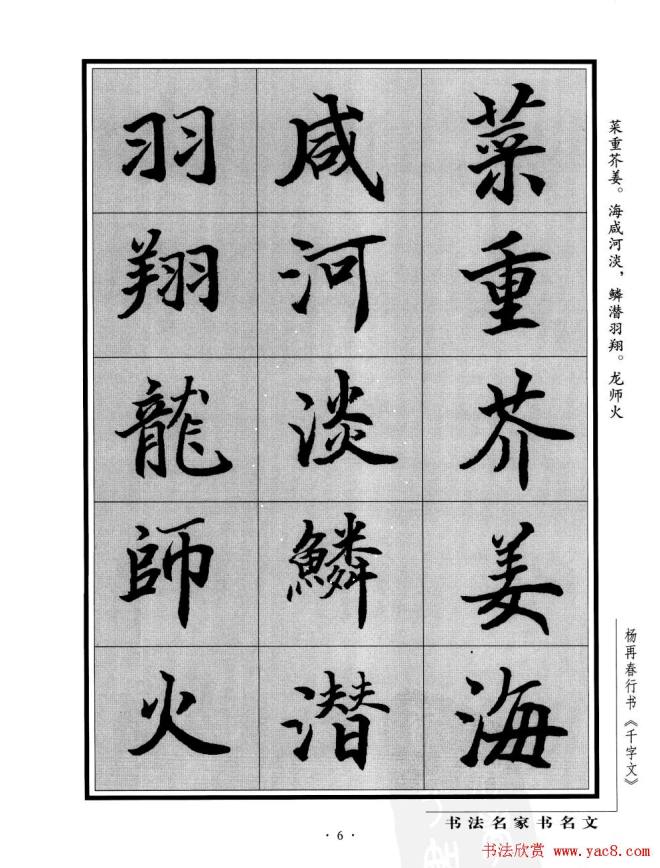 菜重芥姜海
咸河淡鳞潜
羽翔龍師火
菜重芥姜。海咸河淡，鳞潜羽翔。龙师火
杨再春行书《千字文》
书法名家书名文
·6·
书法欣赏 www.yac8.com